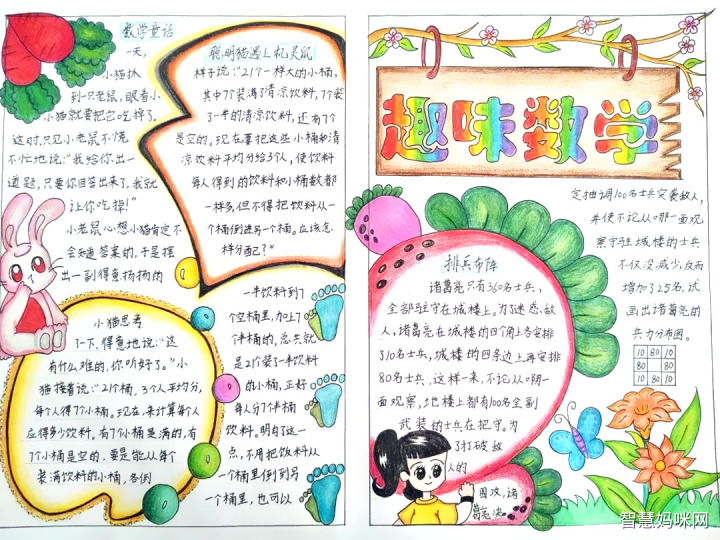 数学童话
一天,
小猫扒
到一只老鼠,眼看小
小猫就要把它吃掉了
这时,只见小老鼠不慌
不忙地说:“我给你出一
道题,只要你回答出来了,我就
让你吃掉!”
小老鼠心想小猫肯定不
会知道答案的,于是摆
出一副得意扬扬的
聪明猫遇上机灵鼠
样子说:“21个一样大的小桶,
其中7个装满了清凉饮料,7个装
了一半的清凉饮料,还有7个
是空的。现在要把这些小桶和清
凉饮料平均分给3人,使饮料
每人得到的饮料和小桶数都
一样多,但不得把饮料从一
个桶倒进另一个桶。应该怎
样分配?”
小猫思考
了一下,得意地说:“这
有什么难的,你听好了。”小
猫接着说:“21个桶,3个人平均分,
每个人得7个小桶。现在,来计算每个人
应得多少饮料。有7个小桶是满的,有
7个小桶是空的,要是能从每个
装满饮料的小桶,各倒
一半饮料到7
个空桶里,加上7
个半桶的,总共就
是21个装了一半饮料
的小桶,正好
每人分7个半桶
饮料。明白了这一
点,不用把饮料从
一个桶里倒到另
一个桶里,也可以
趣味数学
排兵布阵
诸葛亮只有360名士兵,
全部驻守在城楼上。为了迷惑敌
人,诸葛亮在城楼的四个角上各安排
了10名士兵,城楼的四条边上再安排
80名士兵,这样一来,不论从哪一面
观察,城楼上都有100名全副
武装的士兵在把守。为
了打破敌
人的
围攻,诸
葛亮决
定抽调100名士兵突袭敌人,
并使不论从哪一面观
察守驻城楼的士兵
不仅没减少,反而
增加了25名。试
画出诸葛亮的
兵力分布图。
10 80 10
80 80
10 80 10
智慧妈咪网